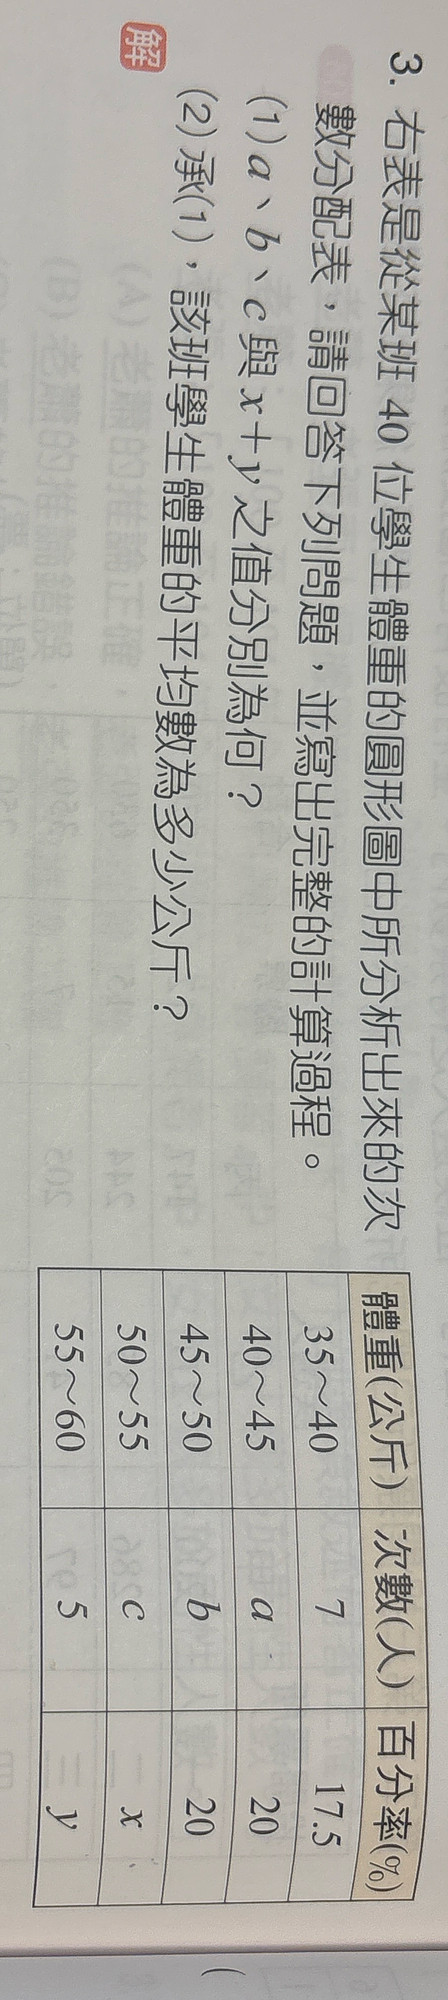 3. 右表是從某班 40 位學生體重的圓形圖中所分析出來的次
數分配表，請回答下列問題，並寫出完整的計算過程。
(1) a、b、c 與 x＋y 之值分別為何？
(2) 承(1)，該班學生體重的平均數為多少公斤？
解
體重(公斤) 次數(人) 百分率(%)
35～40 7 17.5
40～45 a 20
45～50 b 20
50～55 c x
55～60 5 y